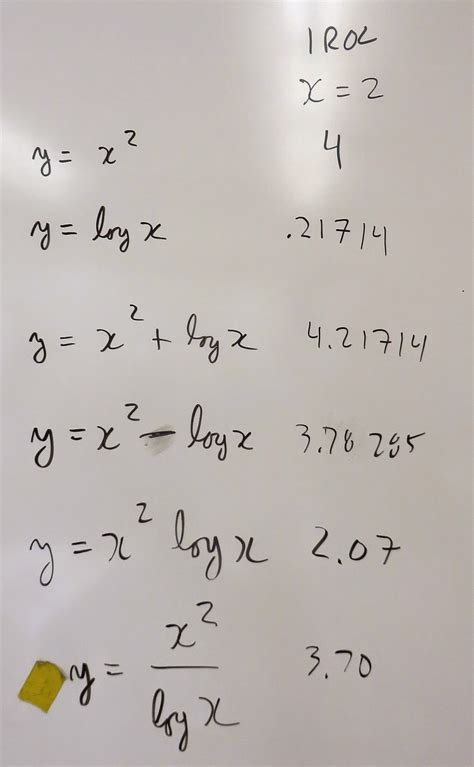 IROC
x = 2
y = x² 4
y = log x .21714
y = x² + log x 4.21714
y = x² - log x 3.78285
y = x² log x 2.07
y = x² / log x 3.70